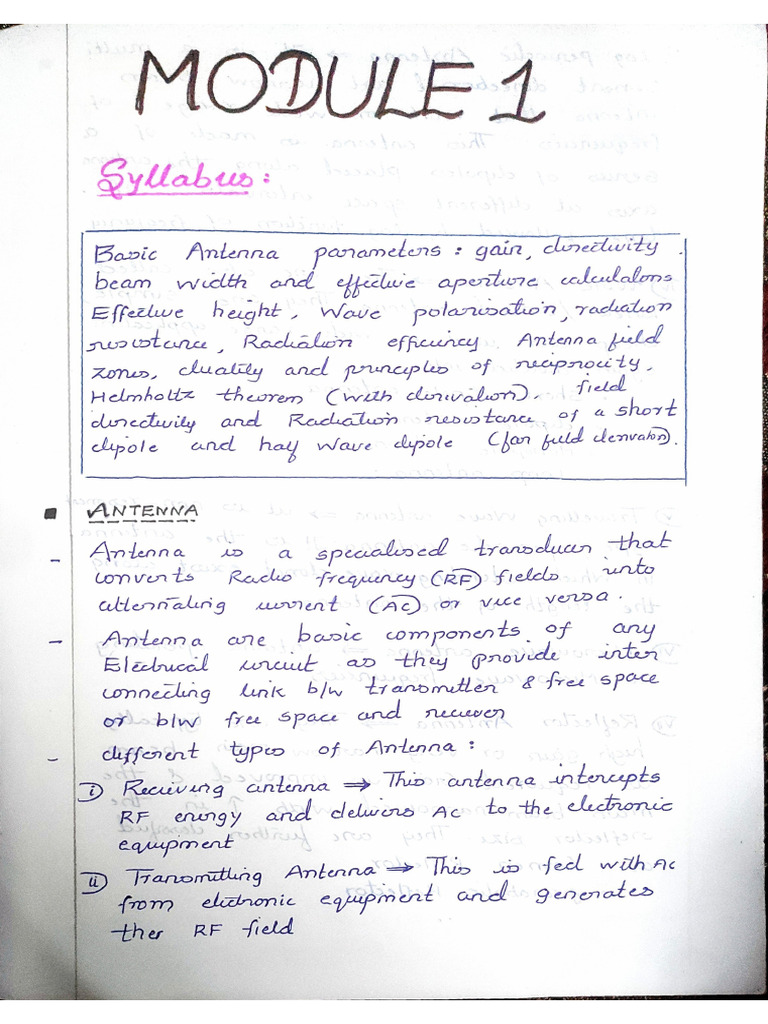 MODULE 1
Syllabus:
Basic Antenna parameters: gain, directivity.
beam width and effective aperture calculatons
Effective height, Wave polarisation, radiation
resistance, Radiation efficiency Antenna field
zones, duality and principles of reciprocity,
Helmholtz theorem (with derivation). field
directivity and Radiation resistance of a short
dipole and half Wave dipole (far field derivaton).
ANTENNA
- Antenna is a specialised transducer that
converts Radio frequency (RF) fields into
alternating current (AC) or vice versa.
- Antenna are basic components of any
Electrical circuit as they provide inter
connecting link b/w transmitter & free space
or b/w free space and reciever
- different types of Antenna:
i) Recieving antenna ⇒ This antenna intercepts
RF energy and delivers AC to the electronic
equipment
ii) Transmitting Antenna ⇒ This is fed with AC
from electronic equipment and generates
ther RF field